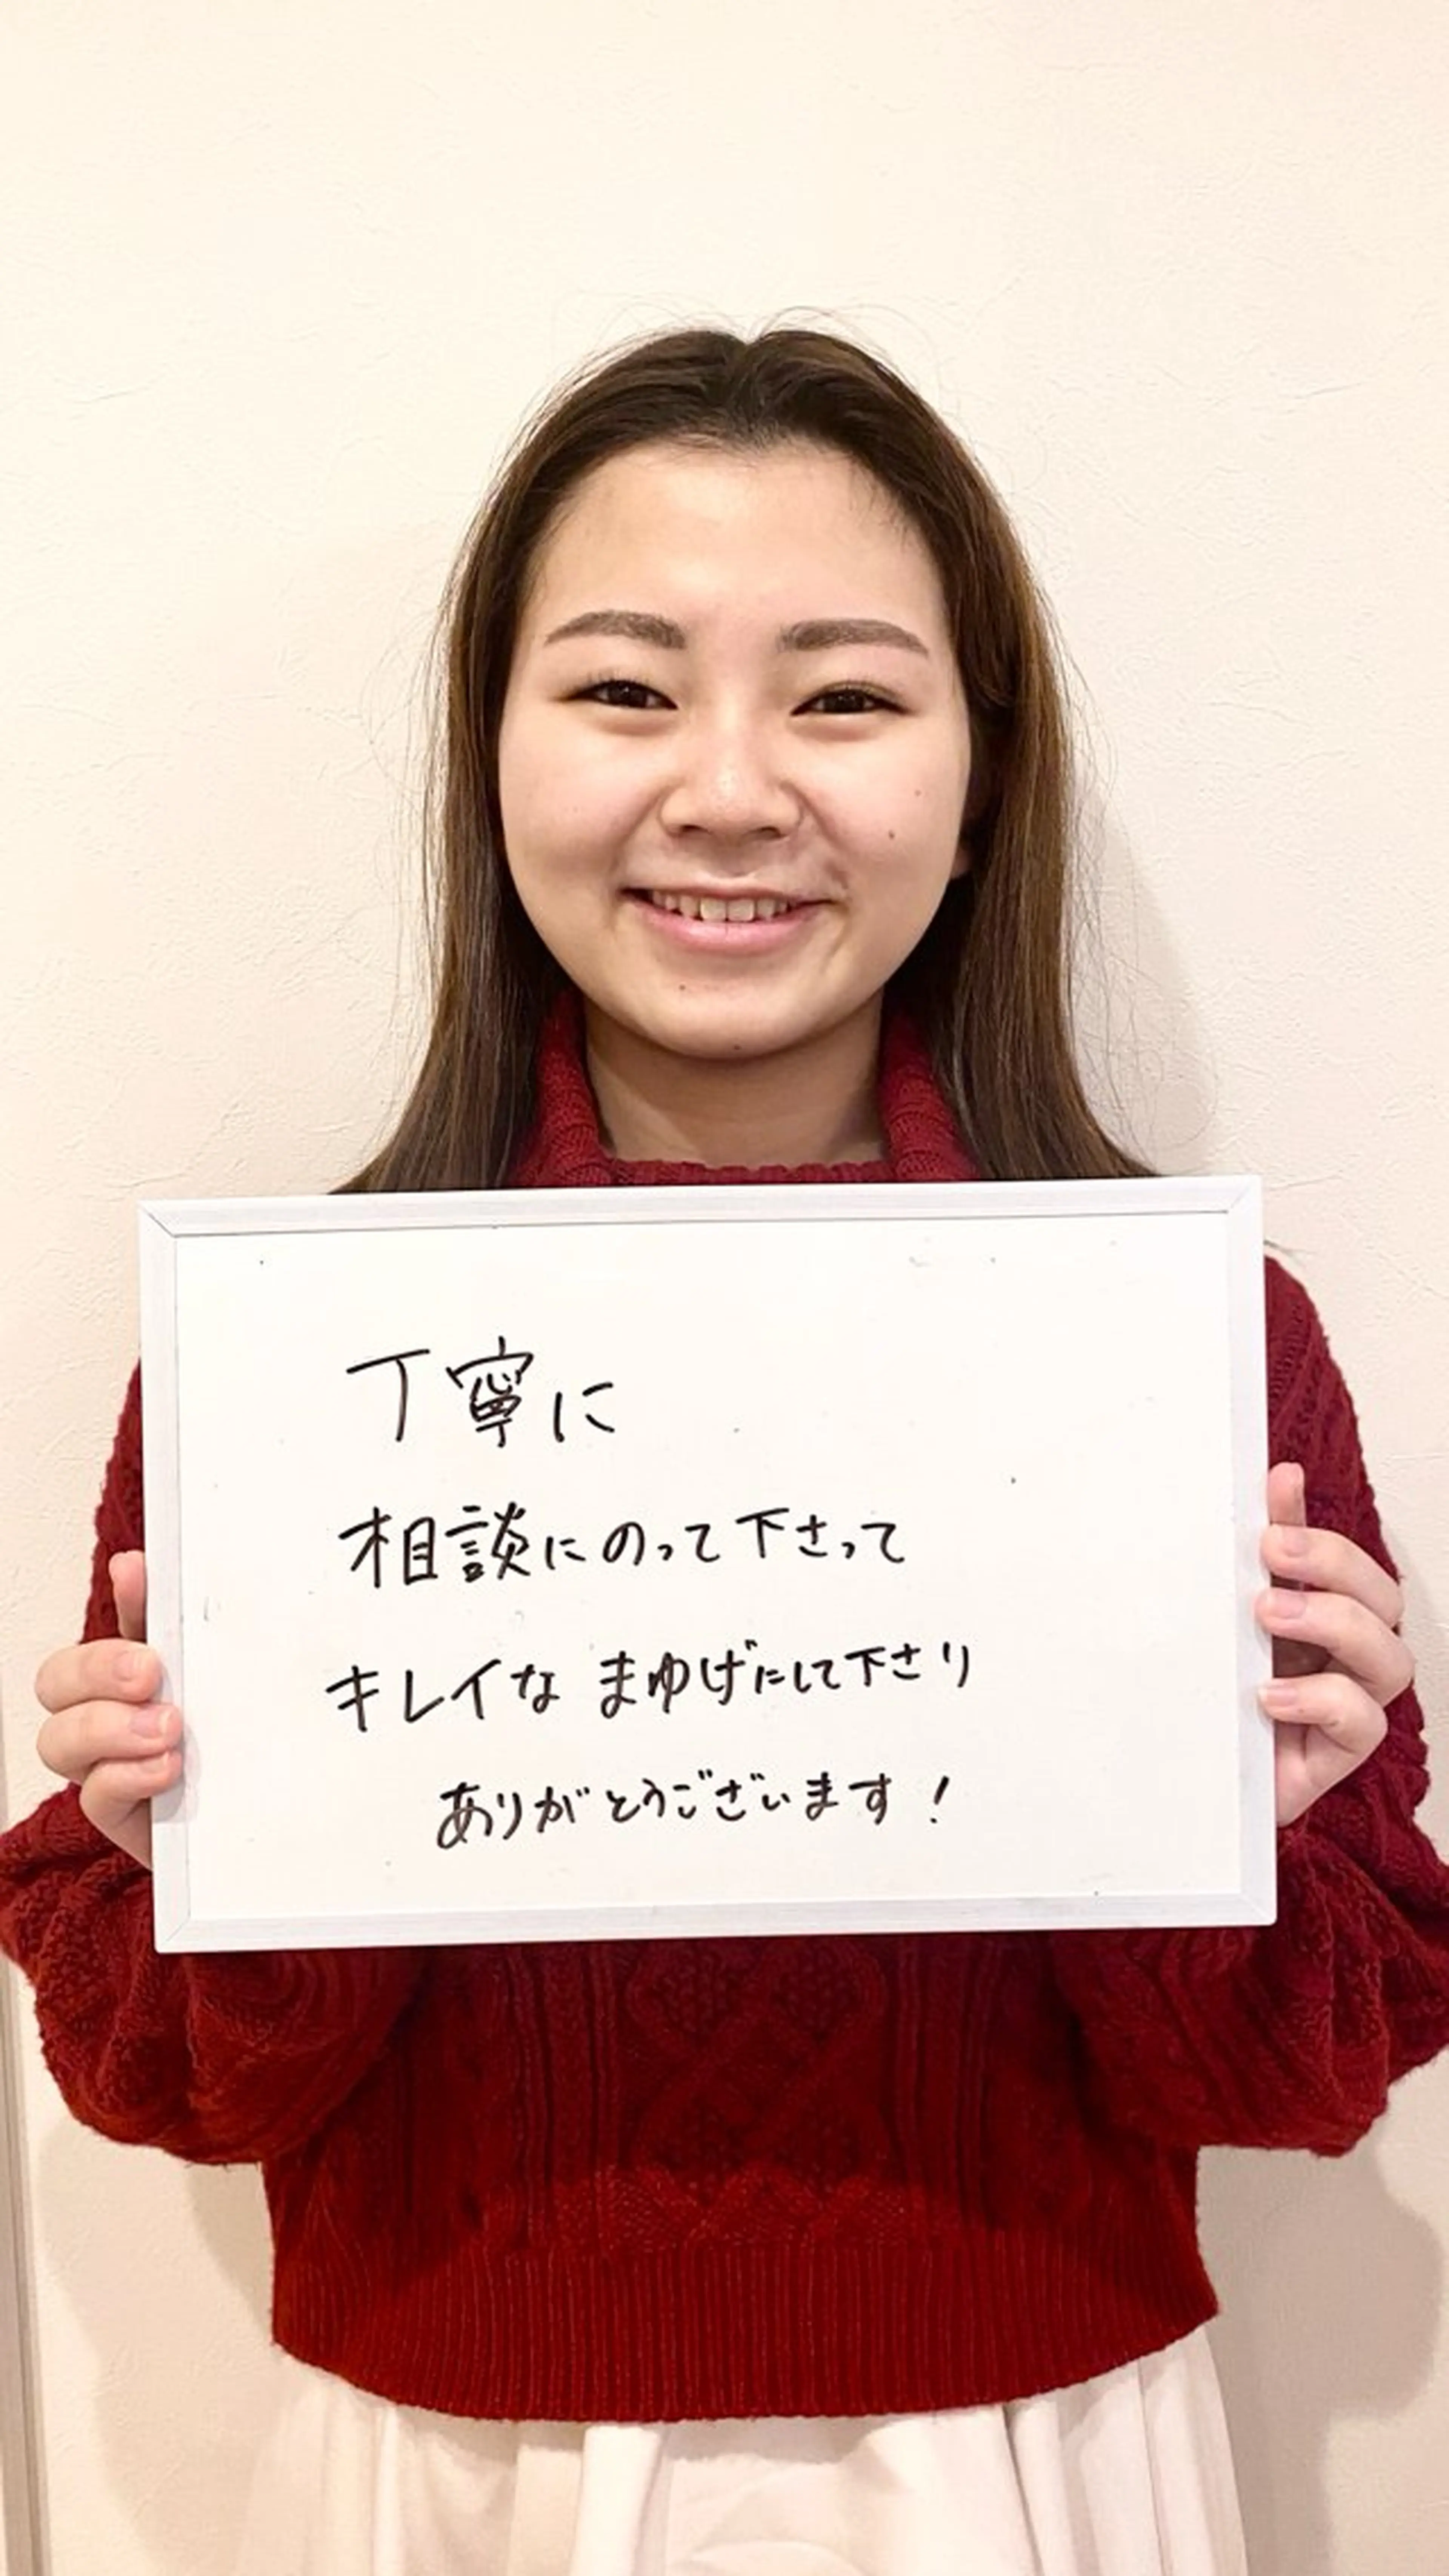 丁寧に
相談にのって下さって
キレイな まゆげにして下さり
ありがとうございます！